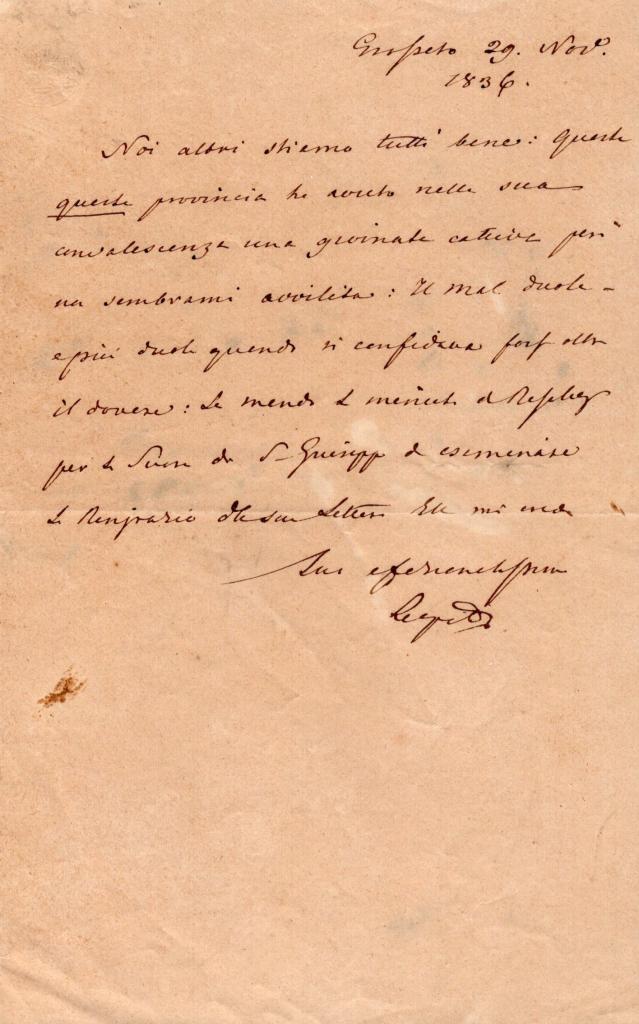 Grosseto 29. Nov.
1836.
Noi altri stiamo tutti bene: questa
questa provincia ha avuto nella sua
convalescenza una giornata cattiva però
sembrami avvilita: Il mal duole
e più duole quando si confidava
il dovere: Le mando la minuta di
per le Suore di S. Giuseppe da esaminare
La Ringrazio della sua Lettera Ella mi creda
Suo affezionatissimo
Leopoldo